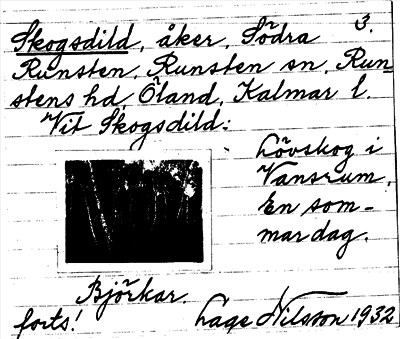 3.
Skogsdild, åker, Södra
Runsten, Runsten sn, Run-
stens hd, Öland, Kalmar l.
Vit Skogsdild:
Lövskog i
Vansrum,
En som-
mardag.
Björkar.
forts! Lage Nilsson 1932